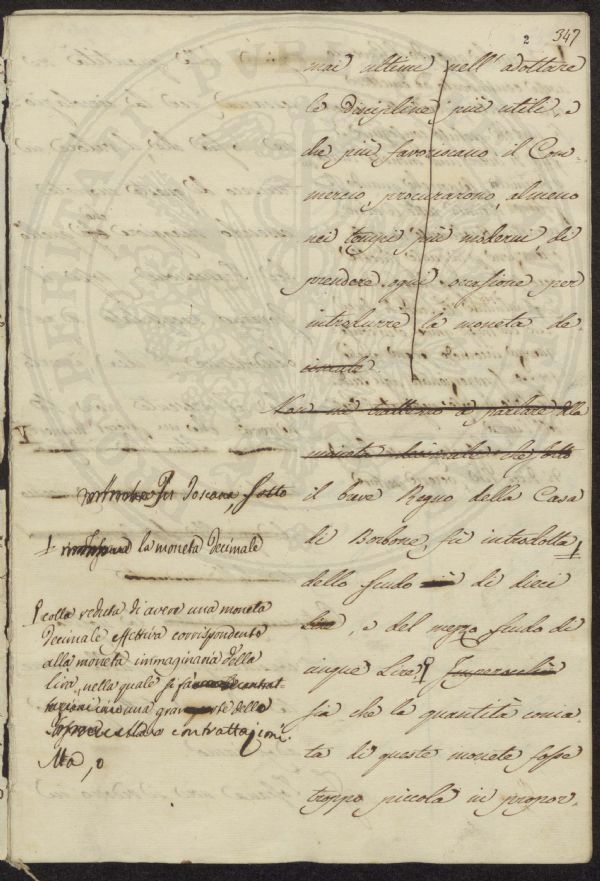 2 347
mai ultimi nell' adottare
le discipline più utili, e
che più favoriscano il Com-
mercio, procurarono, almeno
nei tempi più moderni, di
prendere ogni occasione per
introdurre la moneta de
cimale.
Non mi tratterrò a parlare della
moneta decimale che sotto
il breve Regno della Casa
di Borbone, fù introdotta
dello scudo di dieci
Lire, e del mezzo scudo di
cinque Lire. Imperocchè
sia che la quantità conia-
ta di queste monete fosse
troppo piccola in propor-
In Toscana, sotto
la moneta decimale
colla veduta di avere una moneta
decimale effettiva corrispondente
alla moneta immaginaria della
lira, nella quale si
una gran parte delle
contrattazioni.
Ma, o